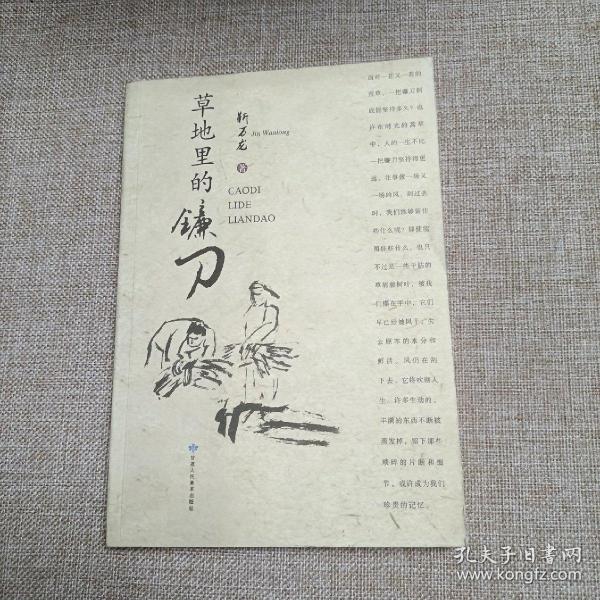 草地里的
镰刀
靳万龙
Jin Wanlong
著
CAODI
LIDE
LIANDAO
面对一茬又一茬的
荒草，一把镰刀到
底能坚持多久？也
许在时光的蒿草
中，人的一生不比
一把镰刀坚持得更
远。往事像一场又
一场的风，刮过去
时，我们能够留住
些什么呢？即使能
留住些什么，也只
不过是一些干枯的
草屑跟树叶，被我
们攥在手中，它们
早已经被风干，失
去原本的水分和
鲜活。风仍在刮
下去，它将吹彻人
生。许多生动的、
丰满的东西不断被
蒸发掉，留下那些
琐碎的片断和细
节，或许成为我们
珍贵的记忆。
甘肃人民美术出版社
孔夫子旧书网
www.kongfz.com